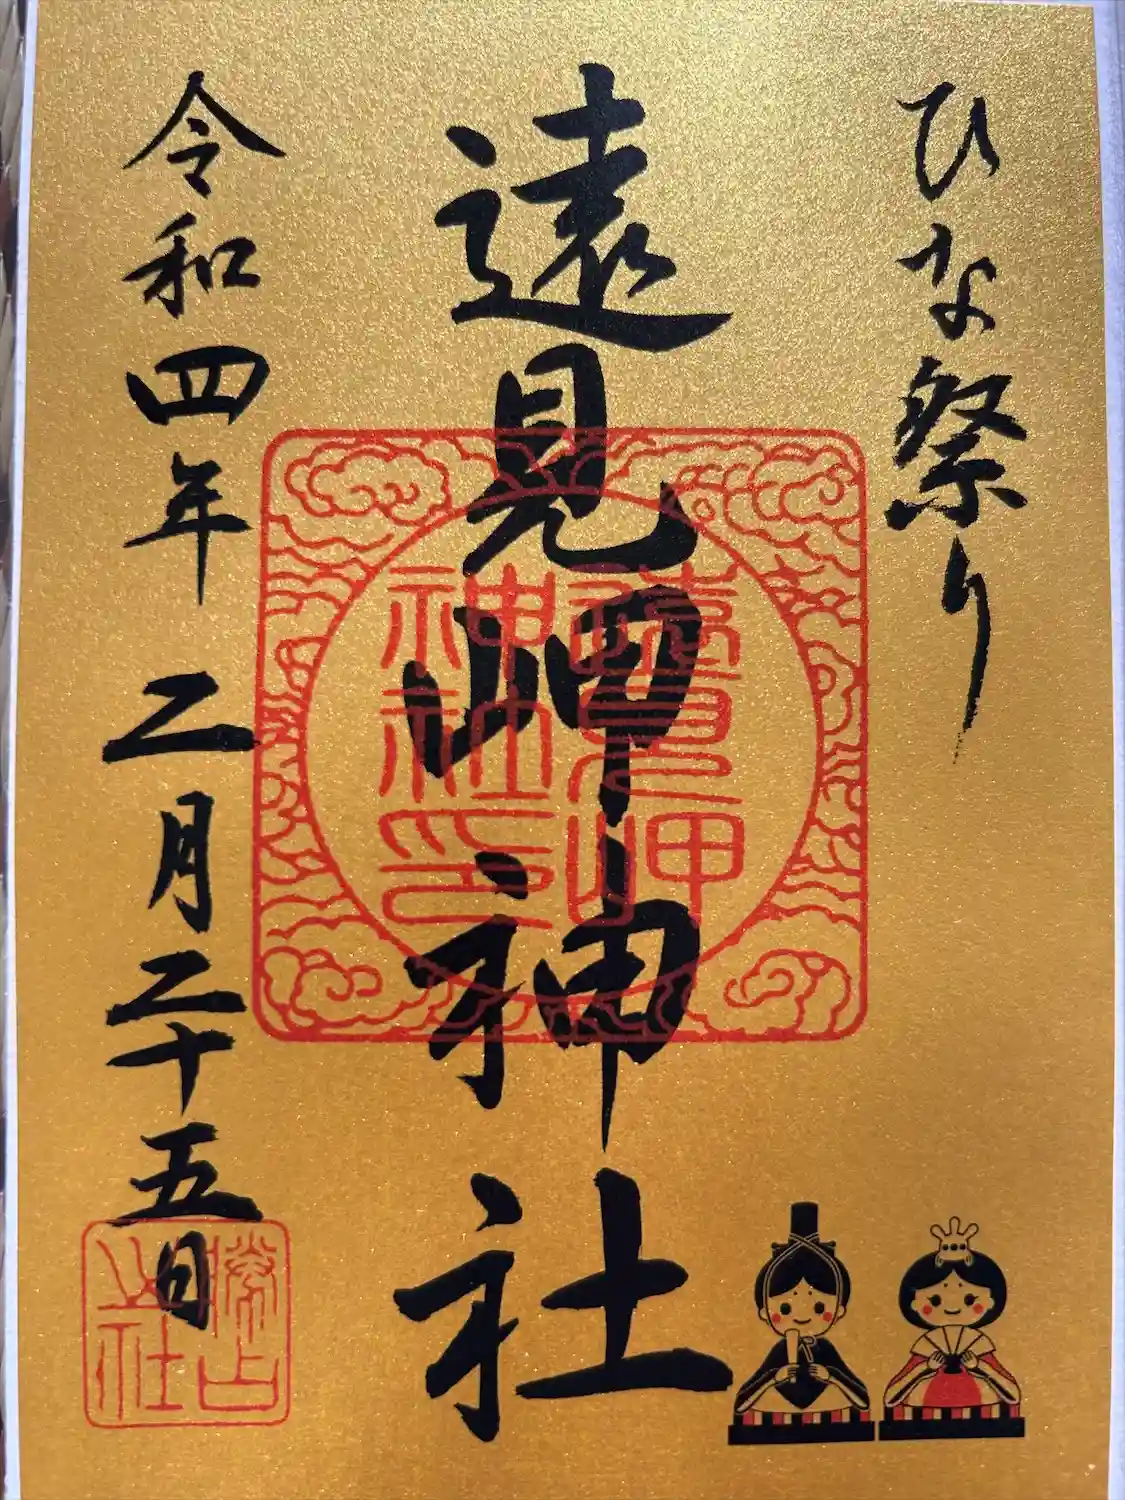 ひな祭り
遠見岬神社
令和四年二月二十五日
遠見岬
神社印
勝占
山社